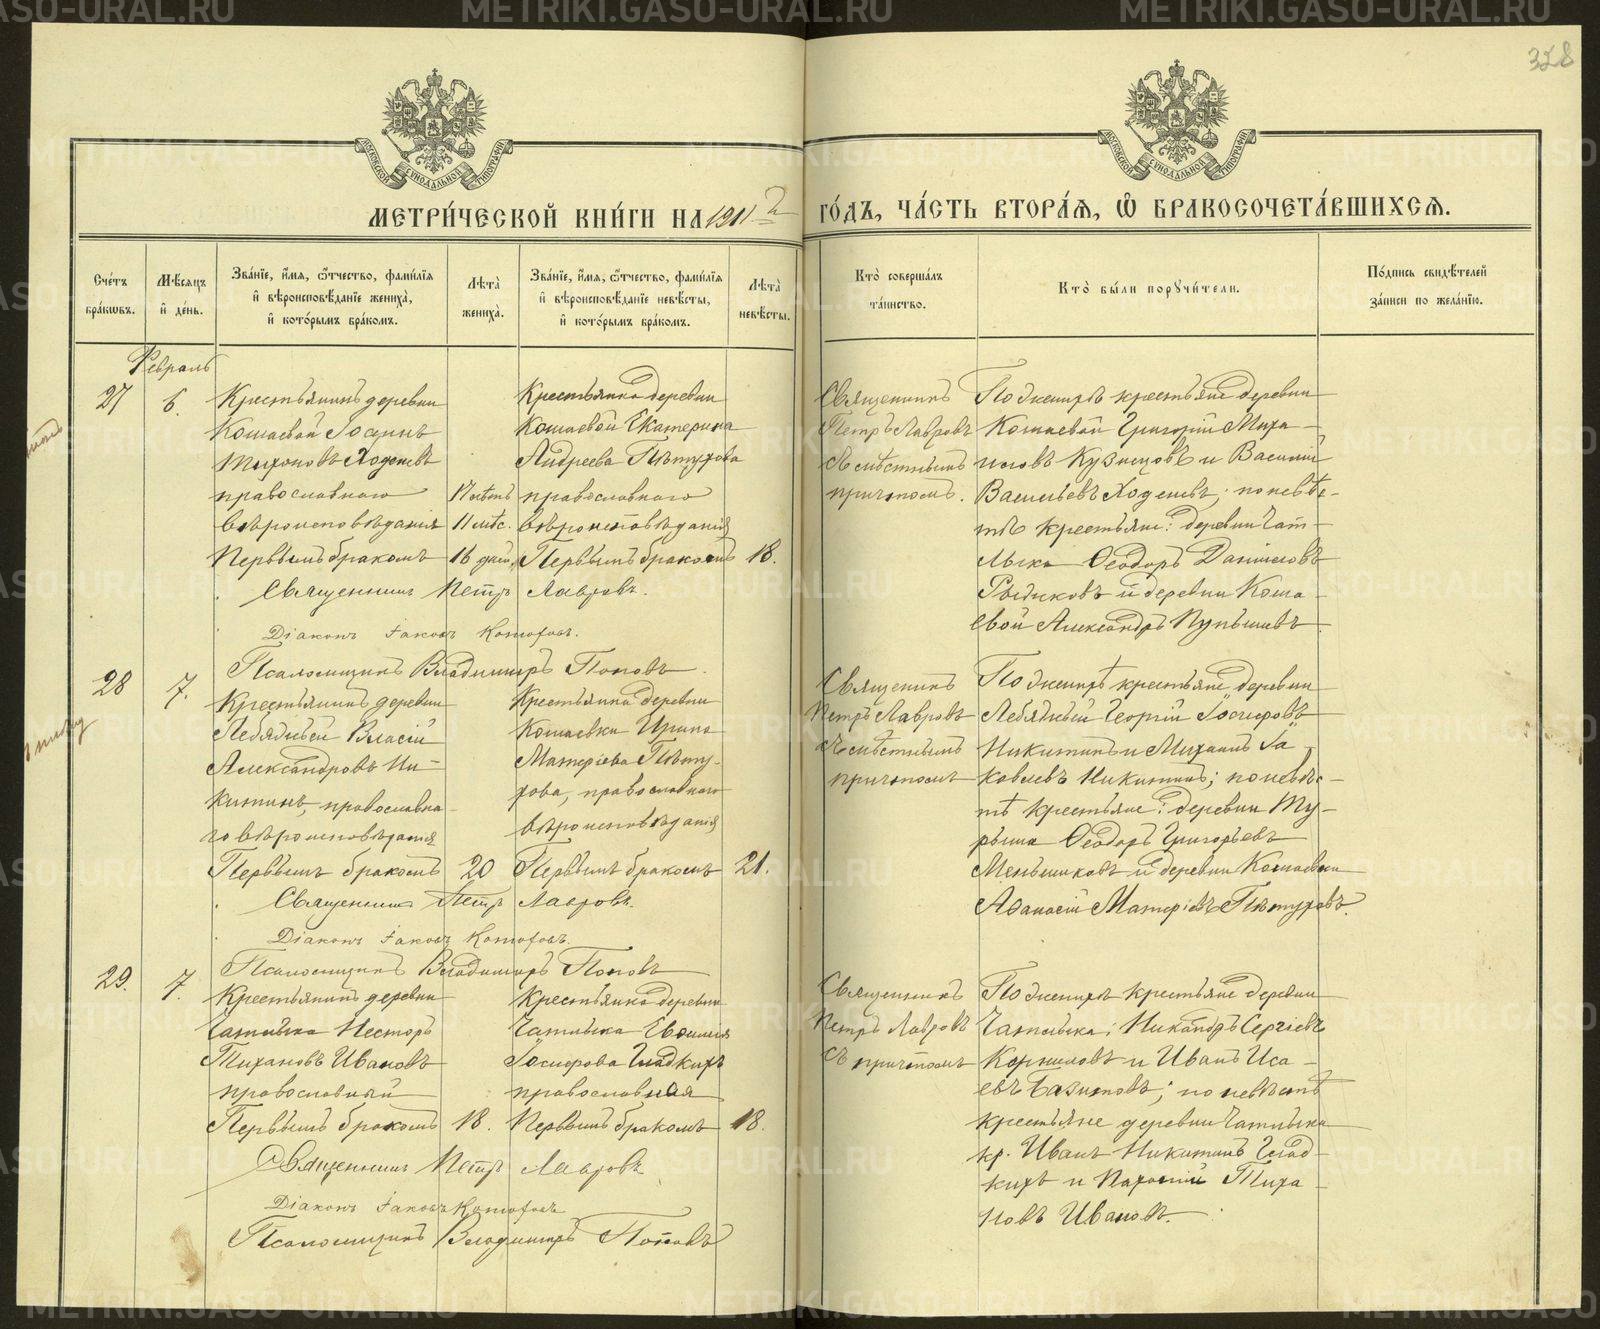 328
МОСКОВСКОЙ СѴНОДАЛЬНОЙ ТИПОГРАФІИ
МОСКОВСКОЙ СѴНОДАЛЬНОЙ ТИПОГРАФІИ
МЕТРИ́ЧЕСКОЙ КНИ́ГИ НА 1911й ГО́ДЪ, ЧА́СТЬ ВТОРА́Я, Ѽ БРАКОСОЧЕТА́ВШИХСЯ.
Сче́тъ бра́кѡвъ.
Мѣ́сяцъ и҆ де́нь.
Зва́нїе, и҆́мя, ѻ҆́тчество, фами́лїя и҆ вѣроисповѣ́данїе жениха̀, и҆ кото́рымъ бра́комъ.
Лѣ́та жениха̀.
Зва́нїе, и҆́мя, ѻ҆́тчество, фами́лїя и҆ вѣроисповѣ́данїе невѣ́сты, и҆ кото́рымъ бра́комъ.
Лѣ́та невѣ́сты.
Кто̀ соверша́лъ та́инство.
Кто̀ бы́ли порꙋчи́тели.
По́дпись свидѣ́телей за́писи по жела́нїю.
Февраль
27
6.
Крестьянинъ деревни
Кошаевой
Тихоновъ Ходеневъ
православнаго
вѣроисповѣданія
Первымъ бракомъ
17 лѣтъ
11 мѣс.
16 дней
Крестьянка деревни
Кошаевой Екатерина
Андреева Пѣтухова
православнаго
вѣроисповѣданія
Первымъ бракомъ
18.
Священникъ
Петръ Лавровъ
съ мѣстнымъ
причтомъ.
По женихѣ крестьяне деревни
Кошаевой Григорій Миха-
иловъ Кузнецовъ и Василій
Васильевъ Ходеневъ; по невѣс-
тѣ крестьяне: деревни Чат-
лыка Ѳеодоръ Даниловъ
и деревни Коша-
евой Александръ
Священникъ Петръ Лавровъ.
Діаконъ Іаковъ
Псаломщикъ Владимиръ Поповъ
28
7.
Крестьянинъ деревни
Лебяжьей Власій
Александровъ Ни-
китинъ, православна-
го вѣроисповѣданія
Первымъ бракомъ
20
Крестьянка деревни
Кошаевки Ирина
Матѳіева Пѣту-
хова, православнаго
вѣроисповѣданія
Первымъ бракомъ
21.
Священникъ
Петръ Лавровъ
съ мѣстнымъ
причтомъ
По женихѣ крестьяне деревни
Лебяжьей Георгій Іосифовъ
Никитинъ и Михаилъ Іа-
ковлевъ Никитинъ; по невѣс-
тѣ крестьяне: деревни
Ѳеодоръ Григорьевъ
Меньшиковъ и деревни Кошаевки
Аѳанасій Матѳіевъ Пѣтуховъ.
Священникъ Петръ Лавровъ.
Діаконъ Іаковъ
Псаломщикъ Владимиръ Поповъ
29.
7.
Крестьянинъ деревни
Чатлыка Несторъ
Тихановъ Ивановъ
православный
Первымъ бракомъ
18.
Крестьянка деревни
Чатлыка
Іосифова Гладкихъ
православная
Первымъ бракомъ
18.
Священникъ
Петръ Лавровъ
съ причтомъ
По женихѣ крестьяне деревни
Чатлыка: Никандръ Сергіевъ
Корниловъ и Иванъ Иса-
евъ; по невѣстѣ
крестьяне деревни Чатлыка
кр. Иванъ Никитинъ Глад-
кихъ и Тиха-
новъ Ивановъ.
Священникъ Петръ Лавровъ
Діаконъ Іаковъ
Псаломщикъ Владимиръ Поповъ
METRIKI.GASO-URAL.RU